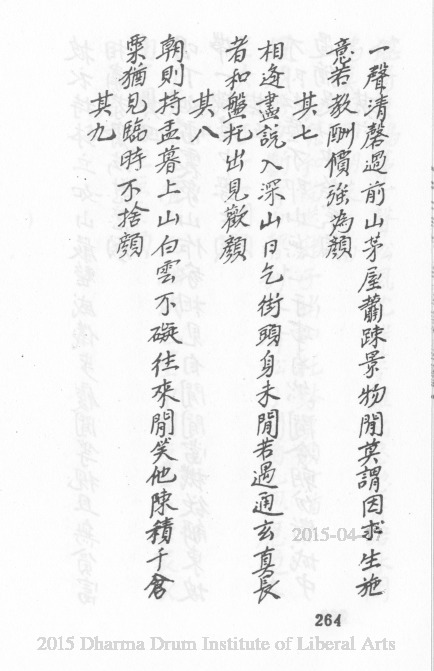 一聲清磬過前山茅屋蕭踈景物閒莫謂因求生施
意若教酬價強為顏
其七
相逢盡說入深山日乞街頭身未閒若遇通玄真長
者和盤托出見歡顏
其八
朝則持盂暮上山白雲不礙往來閒笑他陳積千倉
粟猶見臨時不捨顏
其九
264
2015-04-17
2015 Dharma Drum Institute of Liberal Arts